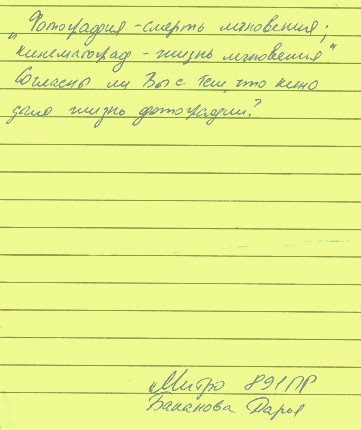 „Фотография - смерть мгновения;
кинематограф - жизнь мгновения"
Согласны ли Вы с тем, что кино
дало жизнь фотографии?
"Митро 891ПР
Баканова Дарья